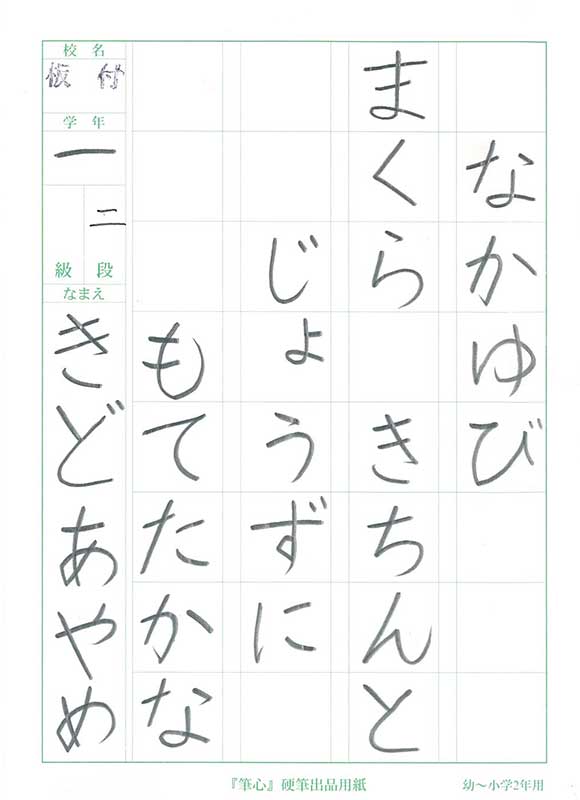 なかゆび
まくら きちんと
じょうずに
もてたかな
校名
板付
学年
一
級 段
二
なまえ
きどあやめ
『筆心』硬筆出品用紙
幼〜小学2年用